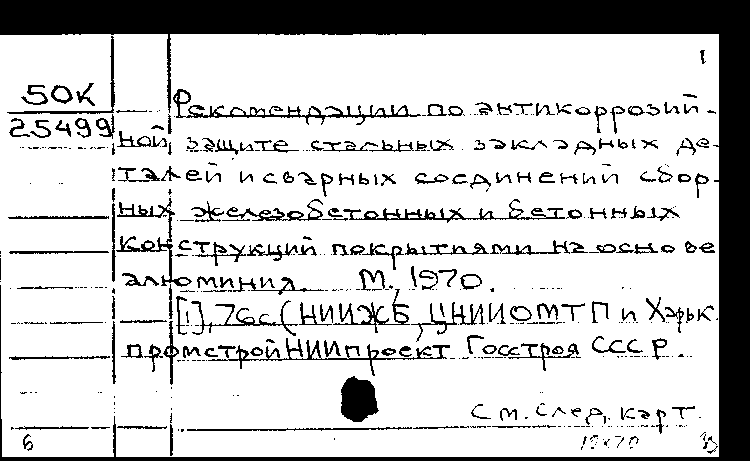 1
50К
25499
Рекомендации по антикоррозий-
ной защите стальных закладных де-
талей и сварных соединений сбор-
ных железобетонных и бетонных
конструкций покрытиями на основе
алюминия. М., 1970.
[1], 76с (НИИЖБ, ЦНИИОМТП и Харьк.
промстройНИИпроект Госстроя СССР.
См. след. карт.
6